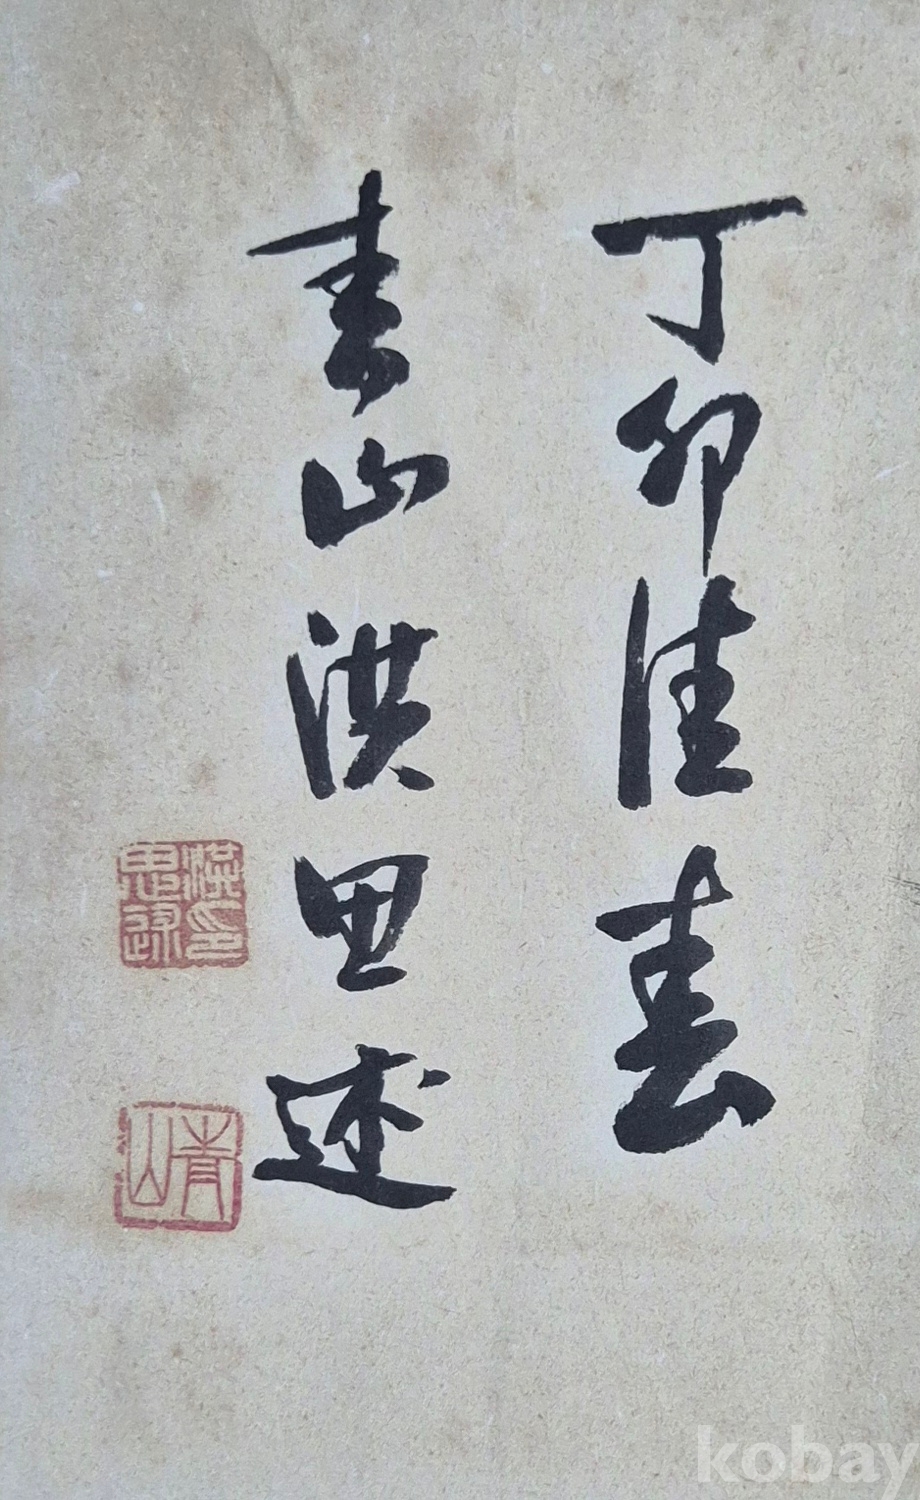 丁卯佳春
青山洪思述
洪思述印
青山
kobay